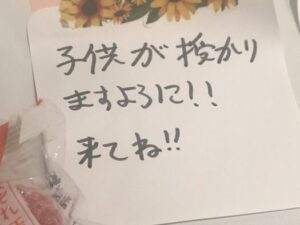 子供が授かり
ますよろに!!
来てね!!